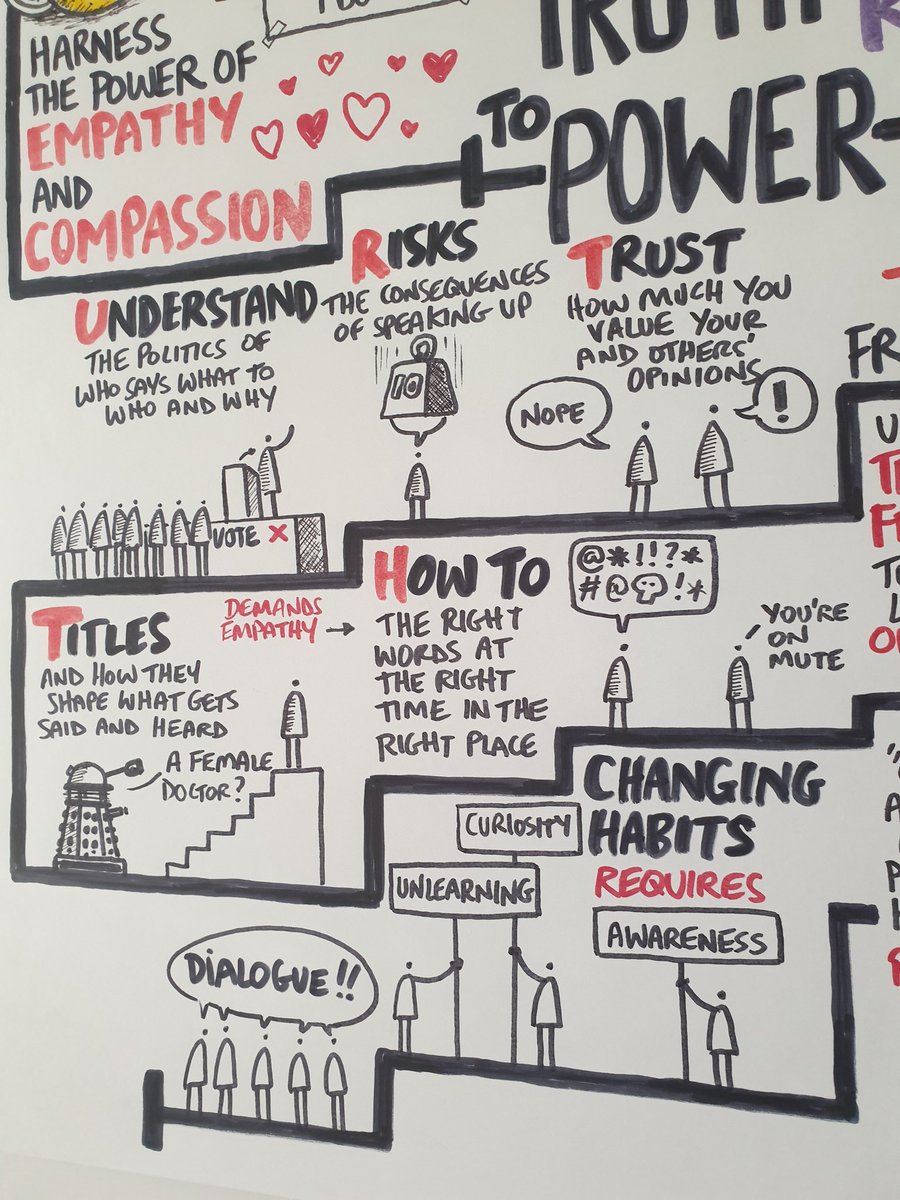 HARNESS
THE POWER OF
EMPATHY
AND
COMPASSION
TRUTH
TO
POWER-
UNDERSTAND
THE POLITICS OF
WHO SAYS WHAT TO
WHO AND WHY
RISKS
THE CONSEQUENCES
OF SPEAKING UP
10
TRUST
HOW MUCH YOU
VALUE YOUR
AND OTHERS'
OPINIONS
NOPE
!
VOTE X
TITLES
AND HOW THEY
SHAPE WHAT GETS
SAID AND HEARD
A FEMALE
DOCTOR?
DEMANDS
EMPATHY →
HOW TO
THE RIGHT
WORDS AT
THE RIGHT
TIME IN THE
RIGHT PLACE
@*!!?*
#@!*
YOU'RE
ON
MUTE
CHANGING
HABITS
REQUIRES
CURIOSITY
UNLEARNING
AWARENESS
DIALOGUE!!
FR